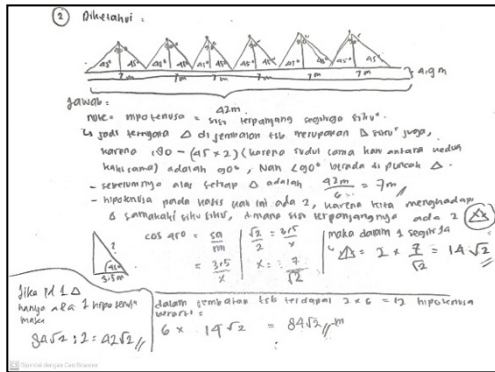 ② Diketahui :
90° 90° 90° 90° 90° 90°
45° 45° 45° 45° 45° 45° 45° 45° 45° 45° 45°
7m 7m 7m 7m 7m 7m
4.9 m
42m
Jawab :
note = hipotenusa = sisi terpanjang segitiga siku².
↳ jadi ternyata △ di jembatan tsb merupakan △ siku² juga,
karena 180 - (45 x 2) (karena sudut sama kan antara kedua
kaki sama) adalah 90°, Nah <90° berada di puncak △.
- sebelumnya alas setiap △ adalah 42m / 6 = 7m
- hipotenusa pada kasus kali ini ada 2, karena kita menghadap
△ samakaki siku siku, dimana sisi terpanjangnya ada 2
?
45°
3.5m
cos 45° = sa / mi
= 3.5 / x
√2 / 2 = 3.5 / x
x = 7 / √2
maka dalam 1 segitiga
= 2 x 7 / √2 = 14√2
Jika Pd 1 △
hanya ada 1 hipotenusa
maka
84√2 : 2 = 42√2 //
dalam jembatan tsb terdapat 2 x 6 = 12 hipotenusa
berarti :
6 x 14√2 = 84√2 // m
Scanned with CamScanner